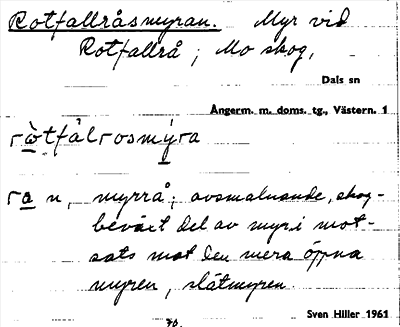 Rotfallråsmyran. Myr vid
Rotfallrå; Mo skog,
Dals sn
Ångerm. m. doms. tg., Västern. 1
ròtfálrosmýra
ra n, myrrå; avsmalnande, skog-
beväxt del av myr i mot-
sats mot den mera öppna
myren, slåtmyren.
Sven Hiller 1961